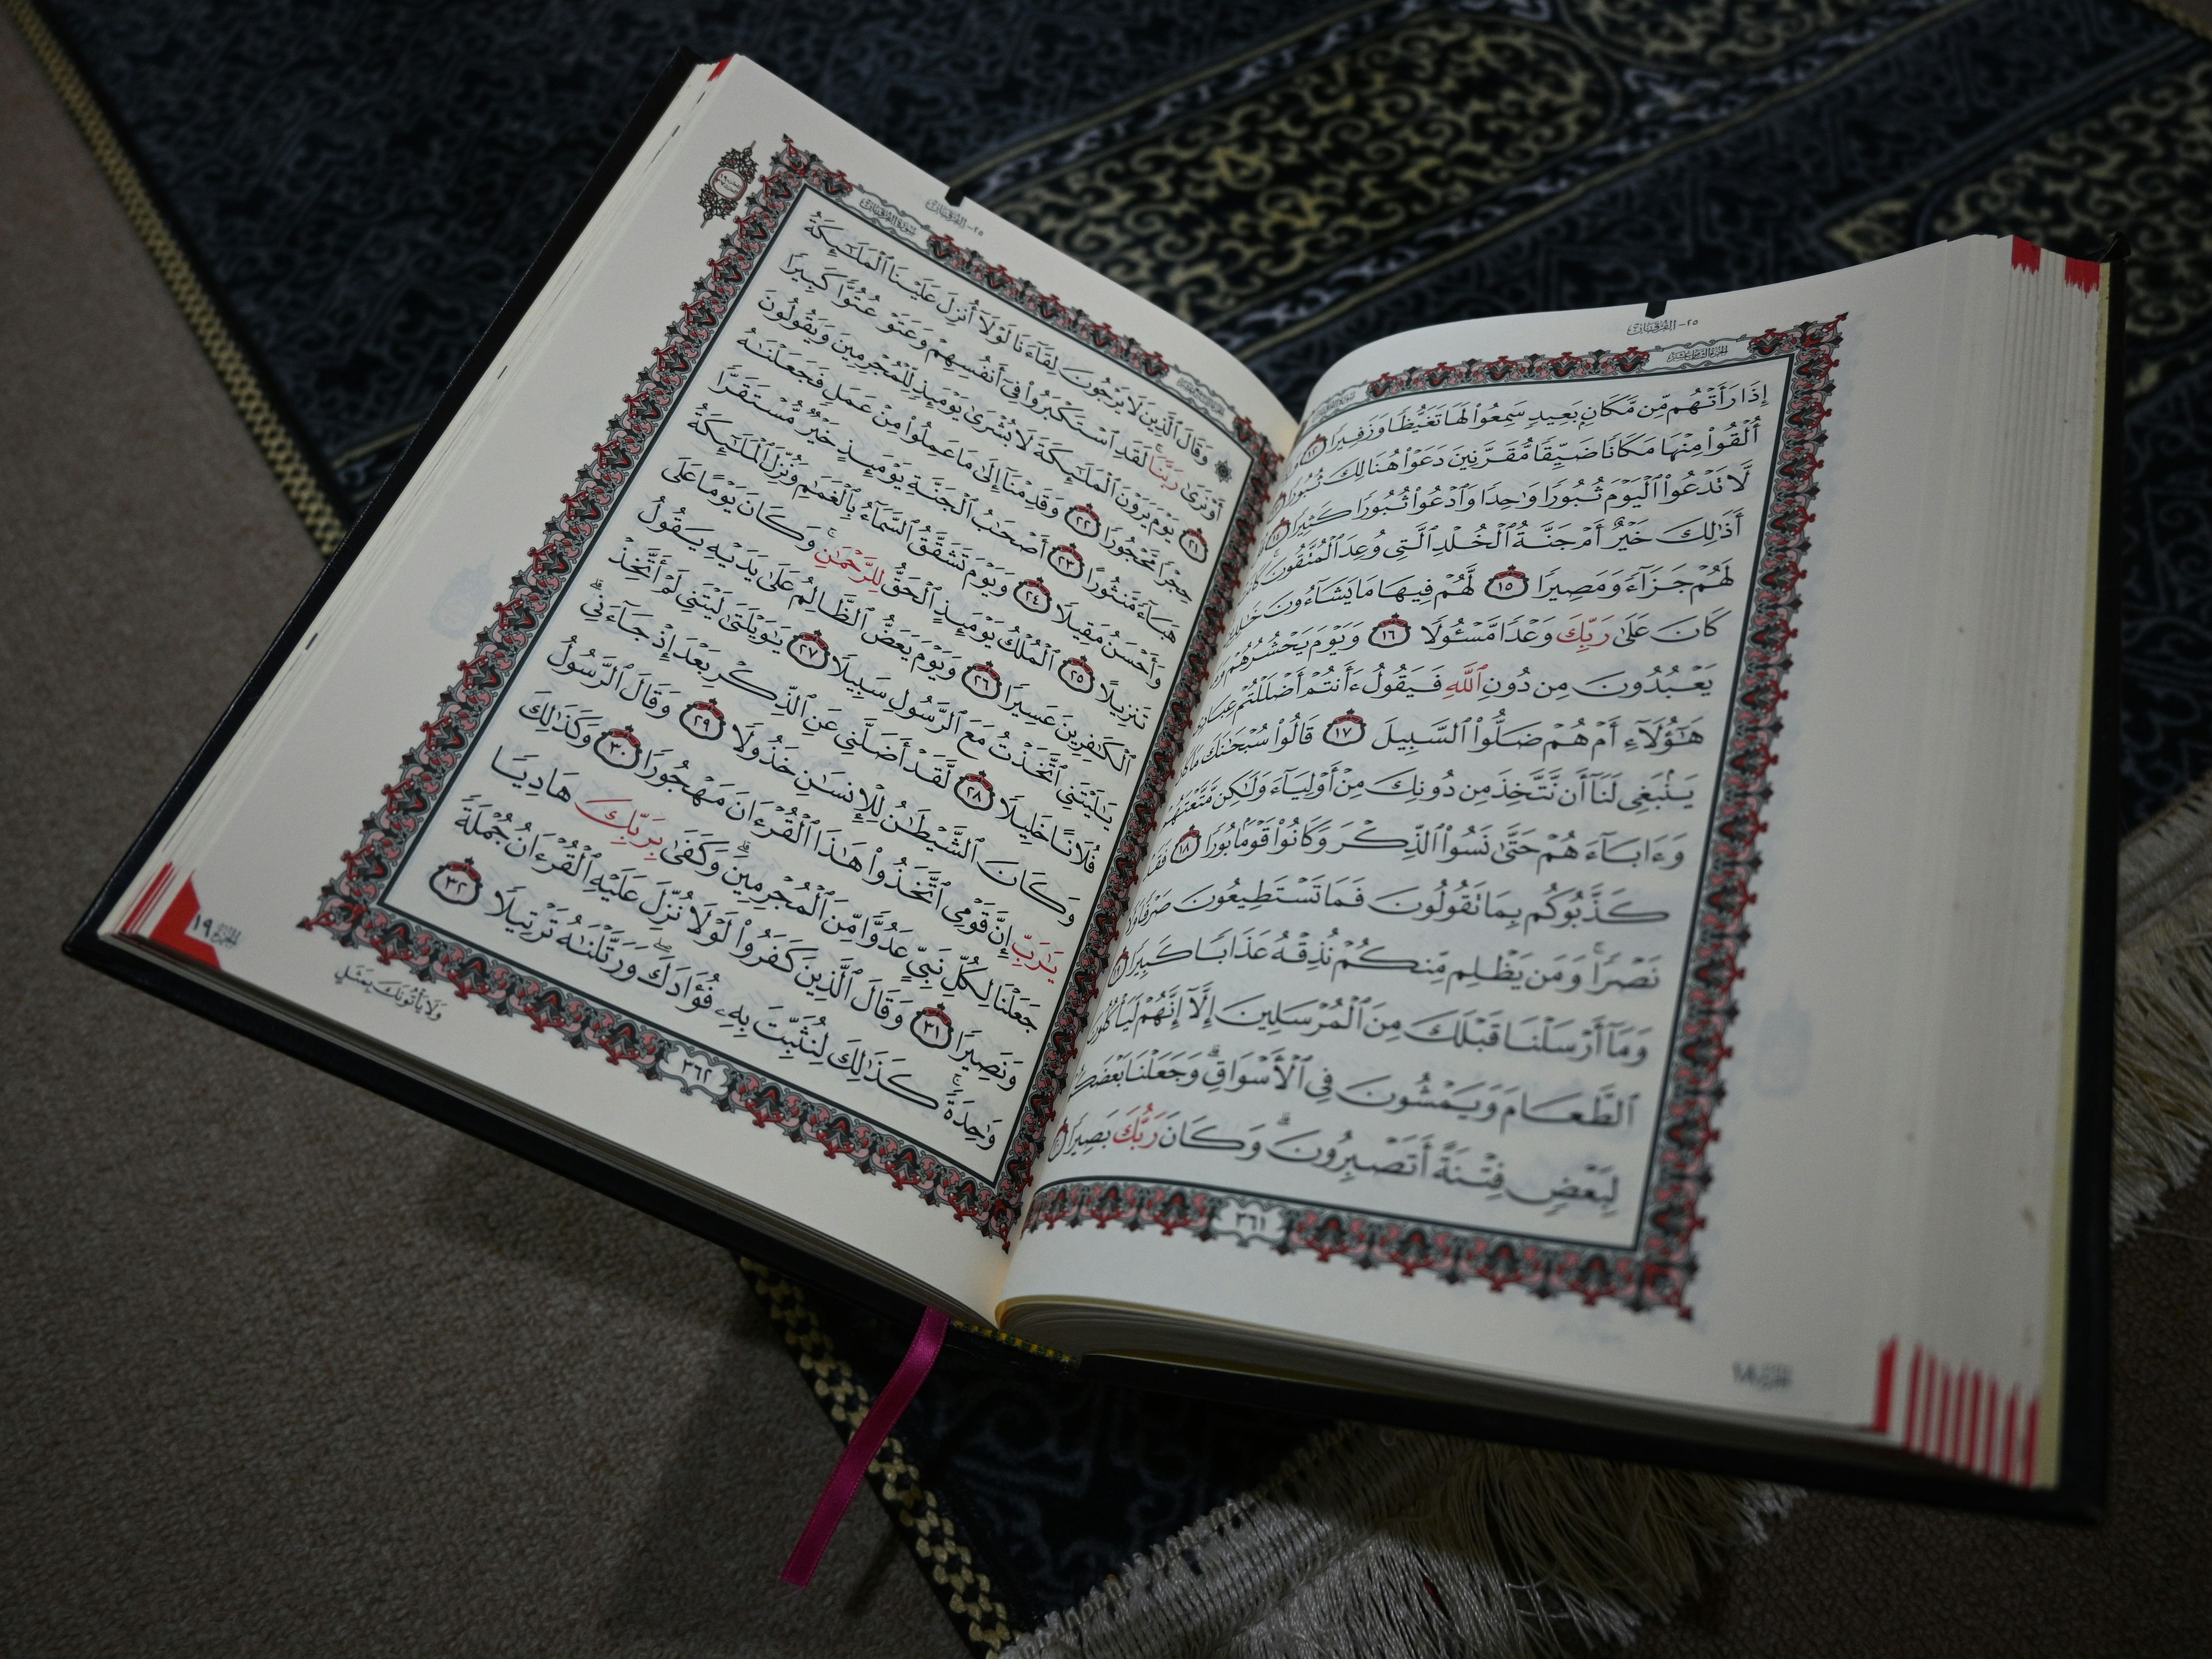 ٢٥- الفرقان
إِذَا رَأَتْهُم مِّن مَّكَانٍ بَعِيدٍ سَمِعُوا۟ لَهَا تَغَيُّظًا وَزَفِيرًا ١٢
أُلْقُوا۟ مِنْهَا مَكَانًا ضَيِّقًا مُّقَرَّنِينَ دَعَوْا۟ هُنَالِكَ ثُبُورًا
لَّا تَدْعُوا۟ ٱلْيَوْمَ ثُبُورًا وَٰحِدًا وَٱدْعُوا۟ ثُبُورًا كَثِيرًا ١٤
أَذَٰلِكَ خَيْرٌ أَمْ جَنَّةُ ٱلْخُلْدِ ٱلَّتِى وُعِدَ ٱلْمُتَّقُونَ
لَهُمْ جَزَآءً وَمَصِيرًا ١٥ لَّهُمْ فِيهَا مَا يَشَآءُونَ
كَانَ عَلَىٰ رَبِّكَ وَعْدًا مَّسْـُٔولًا ١٦ وَيَوْمَ يَحْشُرُهُمْ
يَعْبُدُونَ مِن دُونِ ٱللَّهِ فَيَقُولُ ءَأَنتُمْ أَضْلَلْتُمْ
هَـٰٓؤُلَآءِ أَمْ هُمْ ضَلُّوا۟ ٱلسَّبِيلَ ١٧ قَالُوا۟ سُبْحَـٰنَكَ مَا
يَنۢبَغِى لَنَآ أَن نَّتَّخِذَ مِن دُونِكَ مِنْ أَوْلِيَآءَ وَلَـٰكِن مَّتَّعْتَهُمْ
وَءَابَآءَهُمْ حَتَّىٰ نَسُوا۟ ٱلذِّكْرَ وَكَانُوا۟ قَوْمًۢا بُورًا ١٨ فَقَدْ
كَذَّبُوكُم بِمَا تَقُولُونَ فَمَا تَسْتَطِيعُونَ صَرْفًا وَلَا
نَصْرًا ۚ وَمَن يَظْلِم مِّنكُمْ نُذِقْهُ عَذَابًا كَبِيرًا ١٩
وَمَآ أَرْسَلْنَا قَبْلَكَ مِنَ ٱلْمُرْسَلِينَ إِلَّآ إِنَّهُمْ لَيَأْكُلُونَ
ٱلطَّعَامَ وَيَمْشُونَ فِى ٱلْأَسْوَاقِ ۗ وَجَعَلْنَا بَعْضَكُمْ
لِبَعْضٍ فِتْنَةً أَتَصْبِرُونَ ۗ وَكَانَ رَبُّكَ بَصِيرًا
٣٦١
الجزء ١٨
٢٥- الفرقان
سورة الفرقان
وَقَالَ ٱلَّذِينَ لَا يَرْجُونَ لِقَآءَنَا لَوْلَآ أُنزِلَ عَلَيْنَا ٱلْمَلَـٰٓئِكَةُ
أَوْ نَرَىٰ رَبَّنَا ۗ لَقَدِ ٱسْتَكْبَرُوا۟ فِىٓ أَنفُسِهِمْ وَعَتَوْ عُتُوًّا كَبِيرًا
٢١ يَوْمَ يَرَوْنَ ٱلْمَلَـٰٓئِكَةَ لَا بُشْرَىٰ يَوْمَئِذٍ لِّلْمُجْرِمِينَ وَيَقُولُونَ
حِجْرًا مَّحْجُورًا ٢٢ وَقَدِمْنَآ إِلَىٰ مَا عَمِلُوا۟ مِنْ عَمَلٍ فَجَعَلْنَـٰهُ
هَبَآءً مَّنثُورًا ٢٣ أَصْحَـٰبُ ٱلْجَنَّةِ يَوْمَئِذٍ خَيْرٌ مُّسْتَقَرًّا
وَأَحْسَنُ مَقِيلًا ٢٤ وَيَوْمَ تَشَقَّقُ ٱلسَّمَآءُ بِٱلْغَمَـٰمِ وَنُزِّلَ ٱلْمَلَـٰٓئِكَةُ
تَنزِيلًا ٢٥ ٱلْمُلْكُ يَوْمَئِذٍ ٱلْحَقُّ لِلرَّحْمَـٰنِ ۚ وَكَانَ يَوْمًا عَلَى
ٱلْكَـٰفِرِينَ عَسِيرًا ٢٦ وَيَوْمَ يَعَضُّ ٱلظَّالِمُ عَلَىٰ يَدَيْهِ يَقُولُ
يَـٰلَيْتَنِى ٱتَّخَذْتُ مَعَ ٱلرَّسُولِ سَبِيلًا ٢٧ يَـٰوَيْلَتَىٰ لَيْتَنِى لَمْ أَتَّخِذْ
فُلَانًا خَلِيلًا ٢٨ لَّقَدْ أَضَلَّنِى عَنِ ٱلذِّكْرِ بَعْدَ إِذْ جَآءَنِى ۗ
وَكَانَ ٱلشَّيْطَـٰنُ لِلْإِنسَـٰنِ خَذُولًا ٢٩ وَقَالَ ٱلرَّسُولُ
يَـٰرَبِّ إِنَّ قَوْمِى ٱتَّخَذُوا۟ هَـٰذَا ٱلْقُرْءَانَ مَهْجُورًا ٣٠ وَكَذَٰلِكَ
جَعَلْنَا لِكُلِّ نَبِىٍّ عَدُوًّا مِّنَ ٱلْمُجْرِمِينَ ۗ وَكَفَىٰ بِرَبِّكَ هَادِيًا
وَنَصِيرًا ٣١ وَقَالَ ٱلَّذِينَ كَفَرُوا۟ لَوْلَا نُزِّلَ عَلَيْهِ ٱلْقُرْءَانُ جُمْلَةً
وَٰحِدَةً ۚ كَذَٰلِكَ لِنُثَبِّتَ بِهِۦ فُؤَادَكَ ۖ وَرَتَّلْنَـٰهُ تَرْتِيلًا ٣٢
٣٦٢
وَلَا يَأْتُونَكَ بِمَثَلٍ
الجزء ١٩